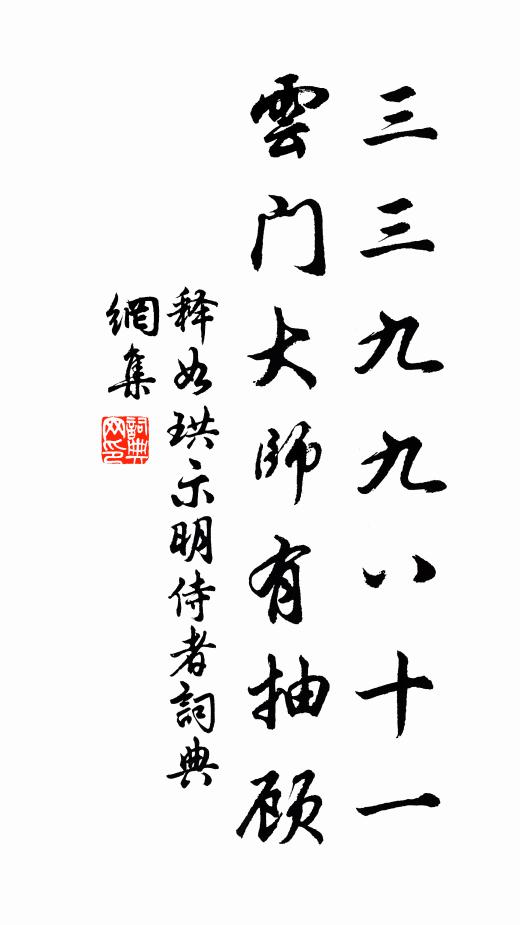 三三九九八十一
雲门大師有抽顾
释如珙示明侍者詞典
網集
詞典
网印